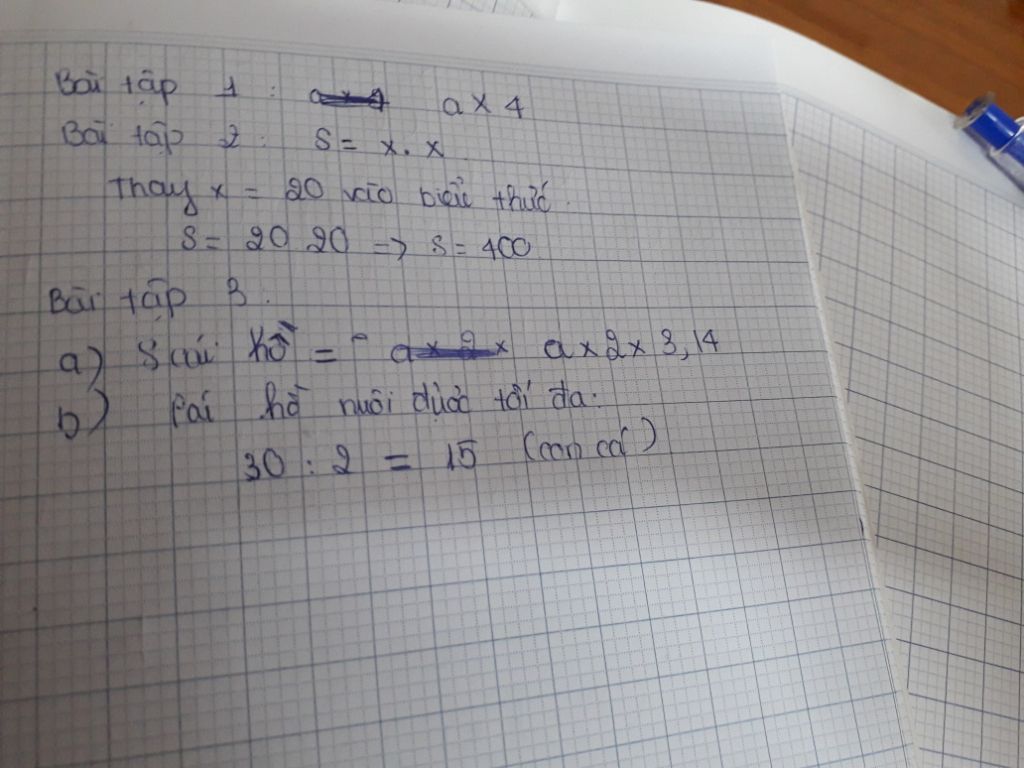 Bài tập 1 : a x 4 a x 4
Bài tập 2 : S = x . x
Thay x = 20 vào biểu thức.
S = 20 20 => S = 400
Bài tập 3 :
a) S cái hồ = a x 2 x a x 2 x 3,14
b) hồ nuôi được tối đa:
30 : 2 = 15 (con cá)